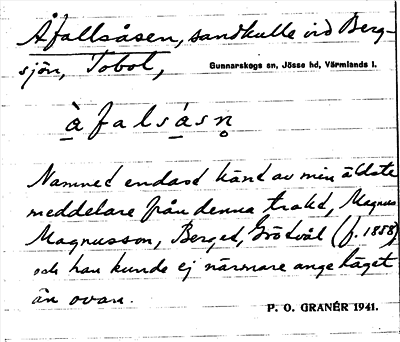 Åfallsåsen, sandkulle vid Berg-
sjön, Tobol,
Gunnarskogs sn, Jösse hd, Värmlands l.
à̱ f a l s á̱ s n̥
Namnet endast känt av min äldste
meddelare från denna trakt, Magnus
Magnusson, Berget, Grötvål (f. 1858)
och han kunde ej närmare ange läget
än ovan.
P. O. GRANÉR 1941.